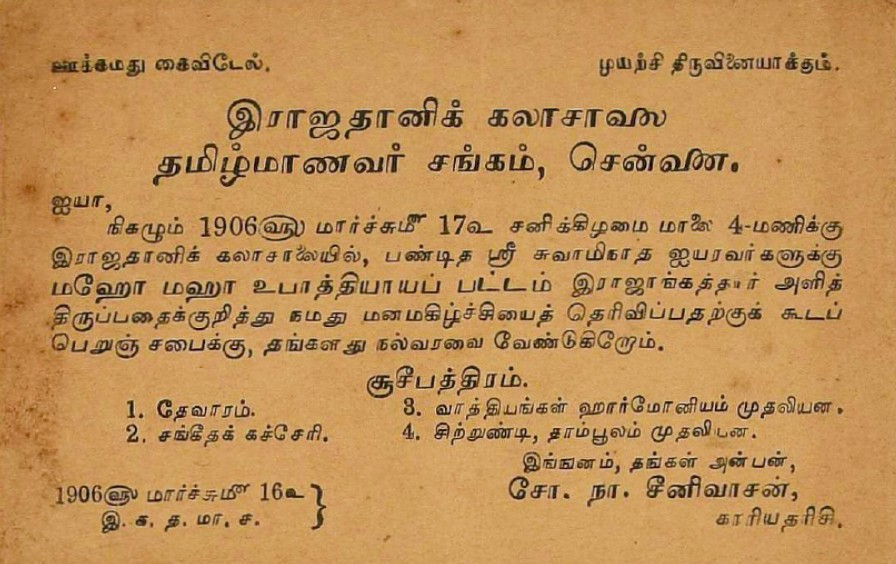 ஊக்கமது கைவிடேல். முயற்சி திருவினையாக்கும்.
இராஜதானிக் கலாசாலை
தமிழ்மாணவர் சங்கம், சென்னை.
ஐயா,
நிகழும் 1906௵ மார்ச்சு௴ 17௳ சனிக்கிழமை மாலை 4-மணிக்கு
இராஜதானிக் கலாசாலையில், பண்டித ஸ்ரீ சுவாமிநாத ஐயரவர்களுக்கு
மஹோ மஹா உபாத்தியாயப் பட்டம் இராஜாங்கத்தார் அளித்
திருப்பதைக்குறித்து நமது மனமகிழ்ச்சியைத் தெரிவிப்பதற்குக் கூடப்
பெறுஞ் சபைக்கு, தங்களது நல்வரவை வேண்டுகிறோம்.
சூசீபத்திரம்.
1. தேவாரம். 3. வாத்தியங்கள் ஹார்மோனியம் முதலியன.
2. சங்கீதக் கச்சேரி. 4. சிற்றுண்டி, தாம்பூலம் முதலியன.
இங்ஙனம், தங்கள் அன்பன்,
1906௵ மார்ச்சு௴ 16௳ சோ. நா. சீனிவாசன்,
இ. க. த. மா. ச. காரியதரிசி.